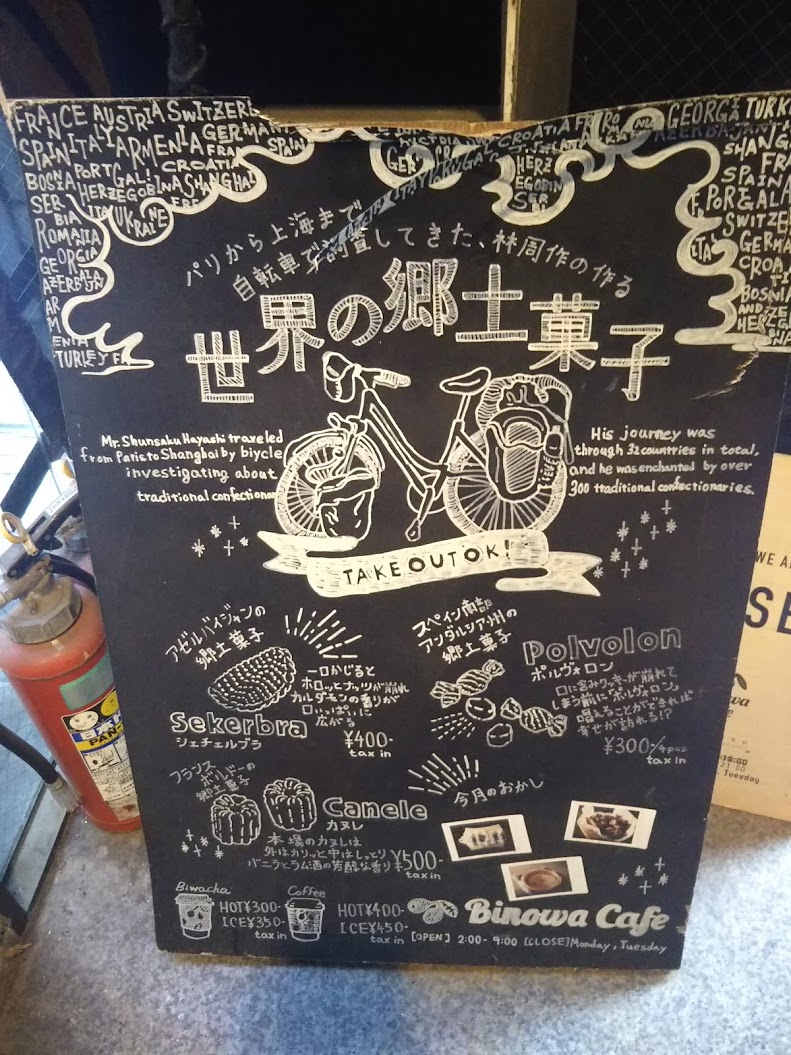 FRANCE AUSTRIA SWITZERL
SPAIN ITALY ARMENIA GERMANY
FRAN SPAIN
CROATIA
BOSNIA PORTGAL!
HERZEGOBINA SHANGHAI
SERBIA
UKRAINE
ROMANIA
GEORGIA
AZERBAIJAN
ARMENIA
TURLEY FR
CROATIA FR
HERZEGOBIN
SER
GEORGIA TURK
AZERBAIJAN
SHANG
FRA
SPAIN
PORTGAL
SWITZE
GERMA
CROA
BOSNIA
AND
HERZEG
パリから上海まで
自転車で調査してきた、林周作の作る
世界の郷土菓子
Mr. Shunsaku Hayashi traveled
from Paris to Shanghai by biycle
investigating about
traditional confectionar
His journey was
through 32 countries in total,
and he was enchanted by over
300 traditional confectionaries.
TAKE OUT OK!
アゼルバイジャンの
郷土菓子
一口かじると
ホロッとナッツが崩れ
カルダモンの香りが
口いっぱいに
広がる
Sekerbra
シェチェルブラ
¥400-
tax in
スペイン南部
アンダルシア州の
郷土菓子
Polvolon
ポルヴォロン
口に含みクッキーが崩れて
しまう前に「ポルヴォロン」
唱えることができれば
幸せが訪れる!?
¥300-/4pcs
tax in
フランス
ボルドーの
郷土菓子
Canele
カヌレ
本場のカヌレは
外はカリッと中はしっとり
バニラとラム酒の芳醇な香り
¥500-
tax in
今月のおかし
Biwacha
HOT¥300-
ICE¥350-
tax in
Coffee
HOT¥400-
ICE¥450-
tax in
Binowa Cafe
[OPEN] 2:00-9:00 [CLOSE] Monday, Tuesday
WE A
SE
wa
19:00
21:00
Tuesday